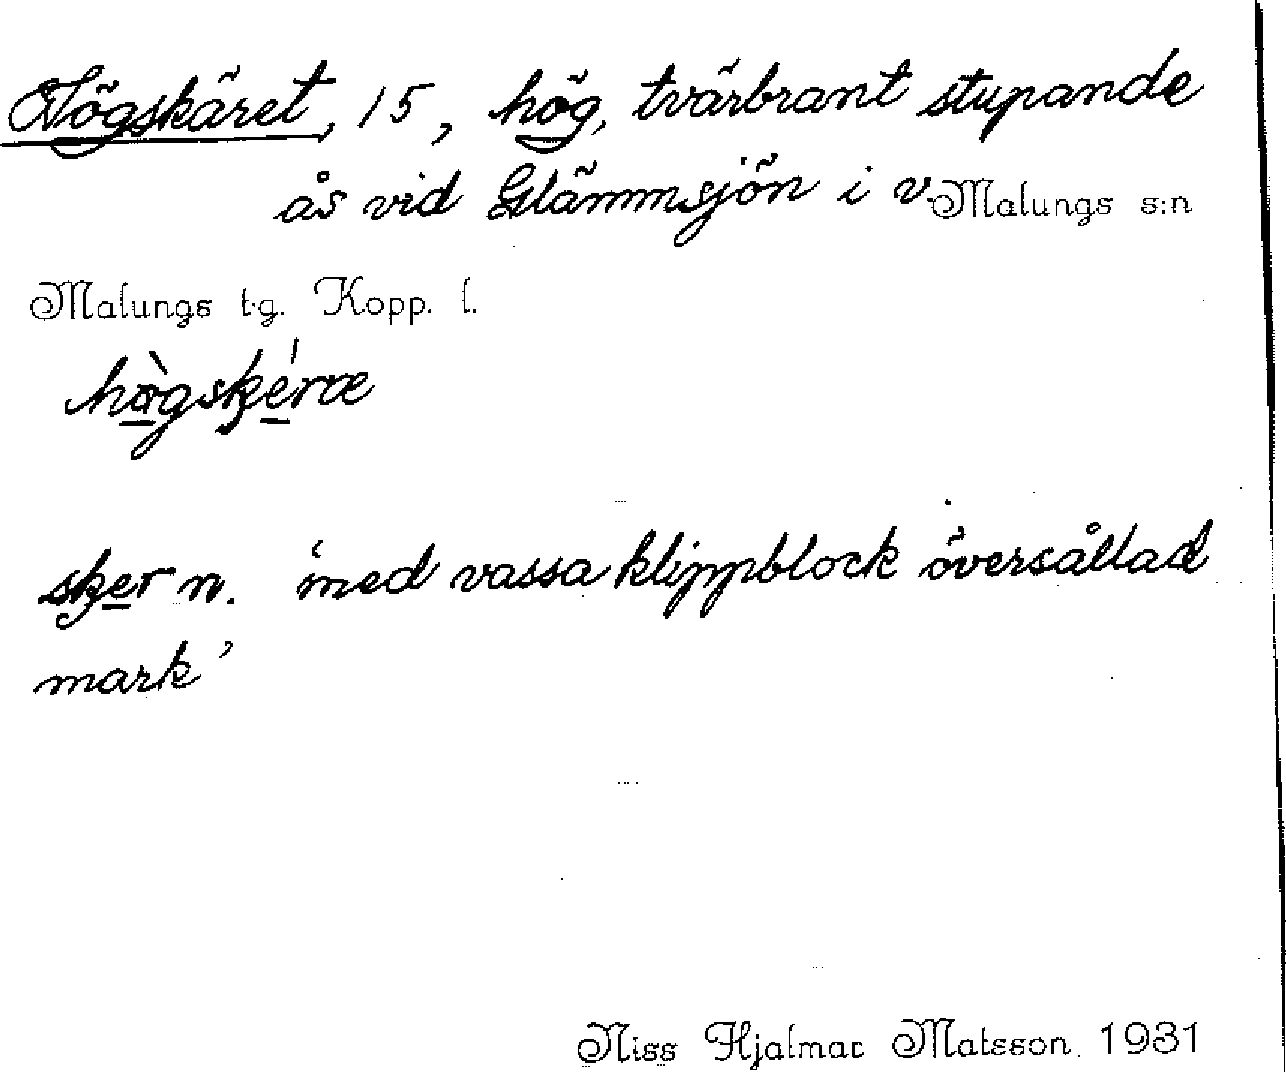 Högskäret, 15, hög, tvärbrant stupande
ås vid Glämmsjön i v. Malungs s:n
Malungs tg. Kopp. l.
hògskéræ
sker n. 'med vassa klippblock översållad
mark'
Niss Hjalmar Matsson. 1931